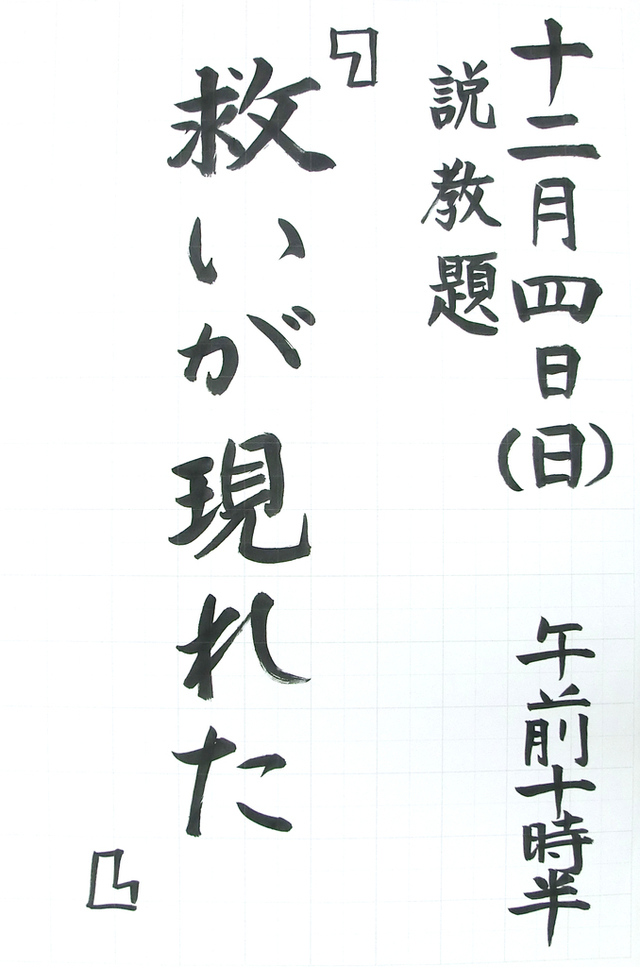 十二月四日(日) 午前十時半
説教題
『救いが現れた』